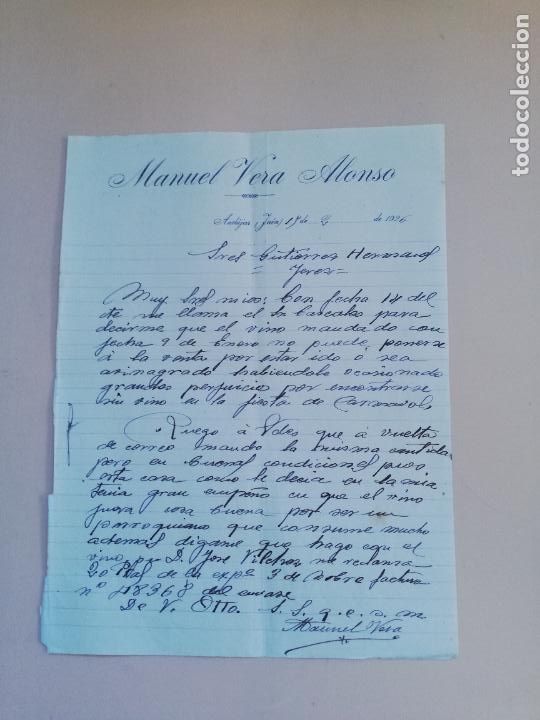 Manuel Vera Alonso
Andújar (Jaén) 17 de 2 de 1926
Sres Gutierrez Hermanos
Jerez
Muy Sres mios: Con fecha 14 del
cte me llama el Sr para
decirme que el vino mandado con
fecha 9 de Enero no puede ponerse
á la venta por estar ido o sea
avinagrado habiendole ocasionado
grandes perjuicios por encontrarse
sin vino en la fiesta de Carnavals
Ruego á Vdes que á vuelta
de correo mande la misma cantidad
pero en buenas condiciones pues
esta casa como le decia en la mia
tenia gran empeño en que el vino
fuera cosa buena por ser un
parroquiano que consume mucho
ademas digame que hago con el
vino, pues D. José Vilchez me reclama
20 Ptas de la expª 3 de Dobre factura
nº 18368 del envase
De V. Atto. S. S. q. e. s. m
Manuel Vera
todocoleccion